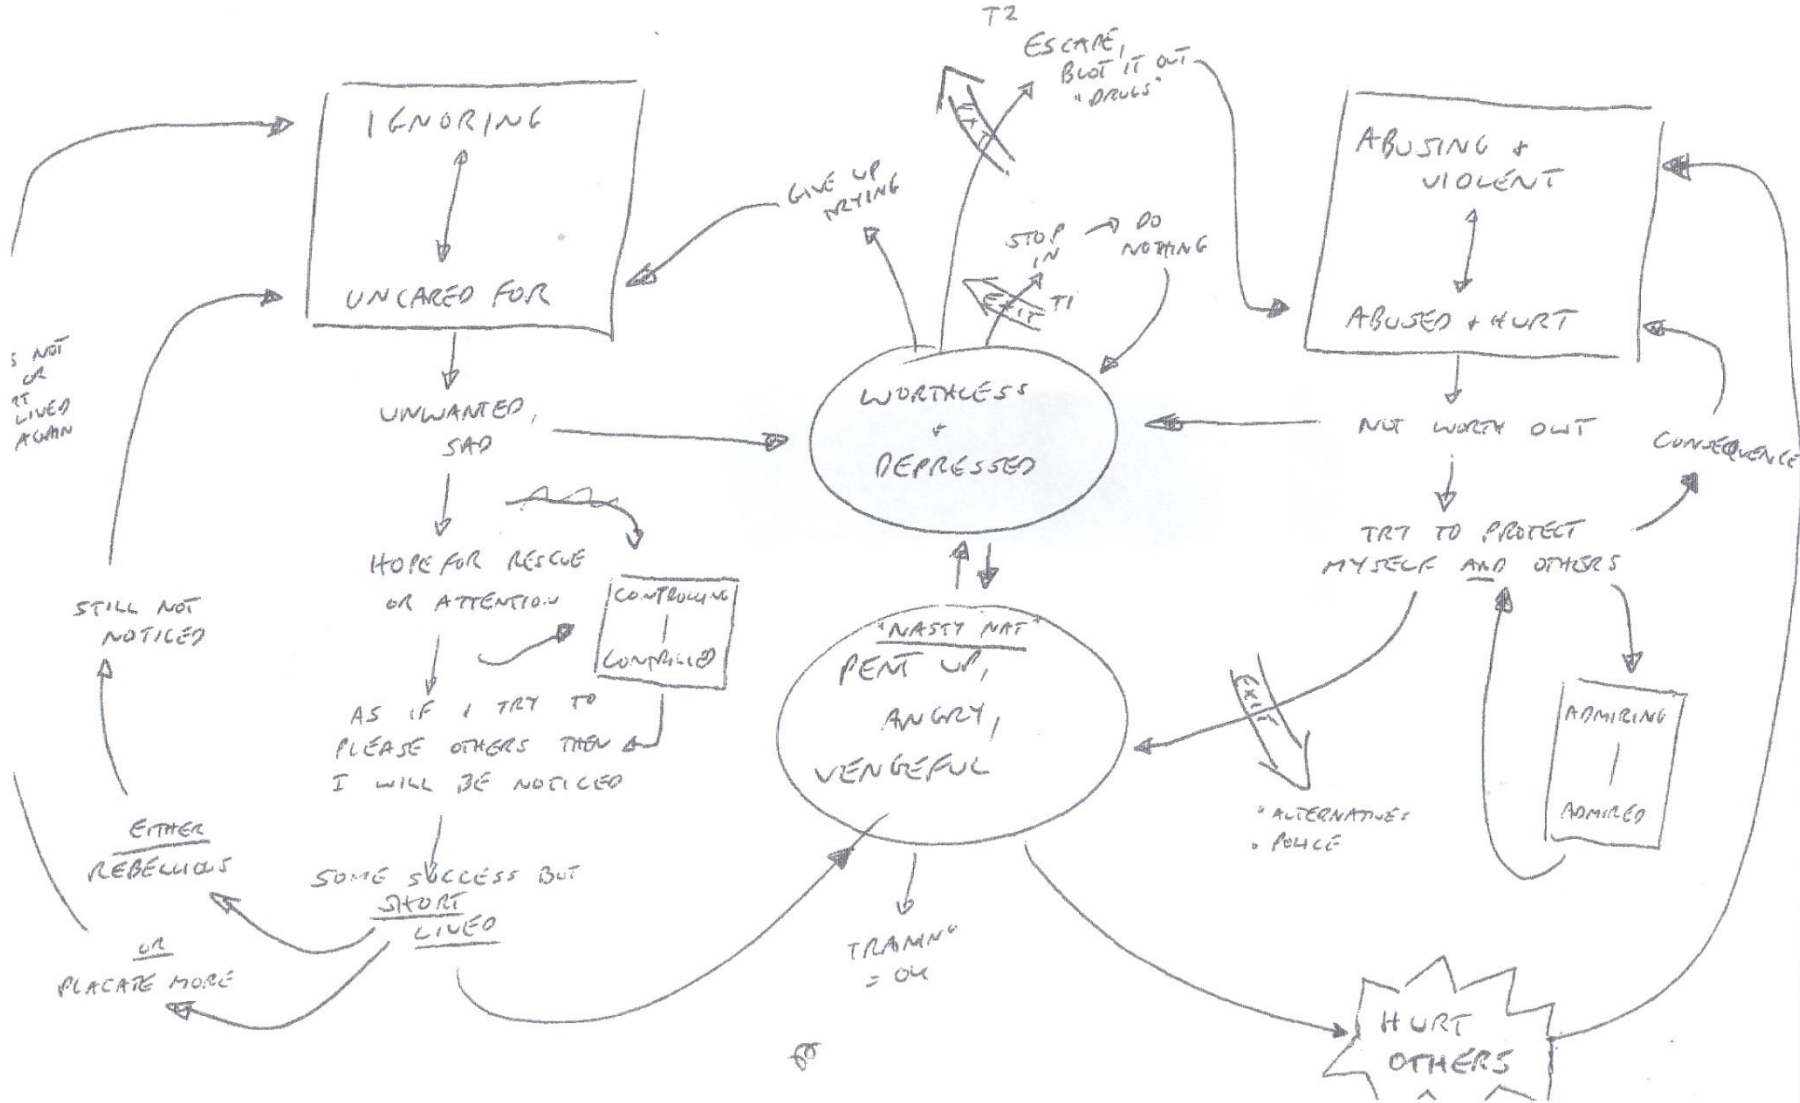 T2
ESCAPE,
BLOT IT OUT
"DRUGS"
EXIT
IGNORING
UNCARED FOR
GIVE UP
TRYING
STOP
IN
DO
NOTHING
EXIT
T1
ABUSING +
VIOLENT
ABUSED + HURT
S NOT
OR
RT
LIVED
AGAIN
UNWANTED,
SAD
WORTHLESS
+
DEPRESSED
NOT WORTH OWT
CONSEQUENCE
HOPE FOR RESCUE
OR ATTENTION
CONTROLLING
CONTROLLED
TRY TO PROTECT
MYSELF AND OTHERS
STILL NOT
NOTICED
"NASTY NAT"
PENT UP,
ANGRY,
VENGEFUL
AS IF I TRY TO
PLEASE OTHERS THEN
I WILL BE NOTICED
EXIT
ADMIRING
ADMIRED
• ALTERNATIVES
• POLICE
EITHER
REBELLIOUS
SOME SUCCESS BUT
SHORT
LIVED
OR
PLACATE MORE
= OK
HURT
OTHERS